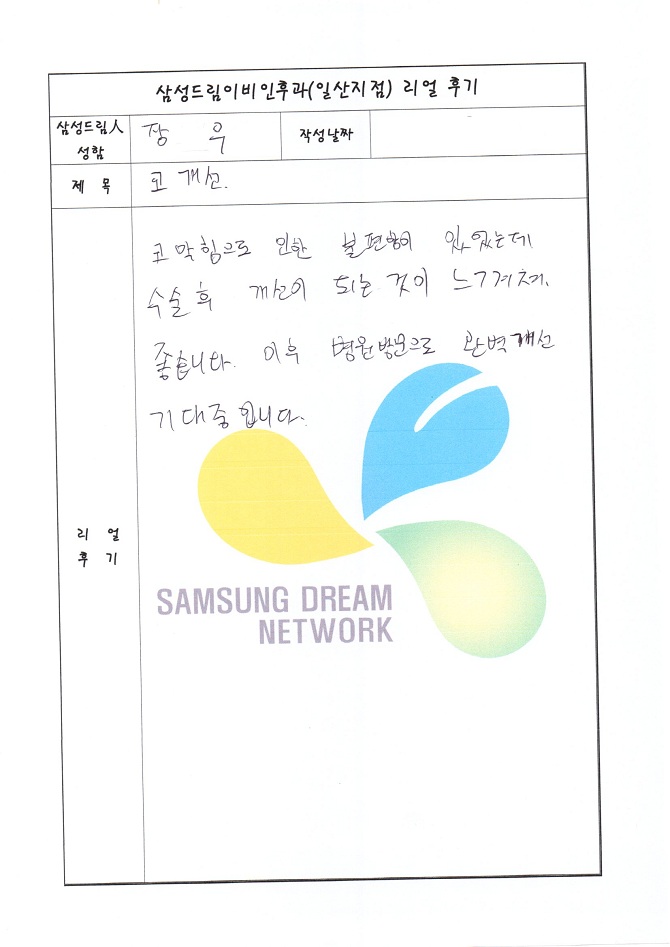 삼성드림이비인후과(일산지점) 리얼 후기
삼성드림人
성함
장 욱
작성날짜
제 목
코 개선.
코막힘으로 인한 불편함이 있었는데
수술 후 개선이 되는 것이 느껴져.
좋습니다. 이후 병원방문으로 완벽개선
기대중입니다.
리 얼
후 기
SAMSUNG DREAM
NETWORK